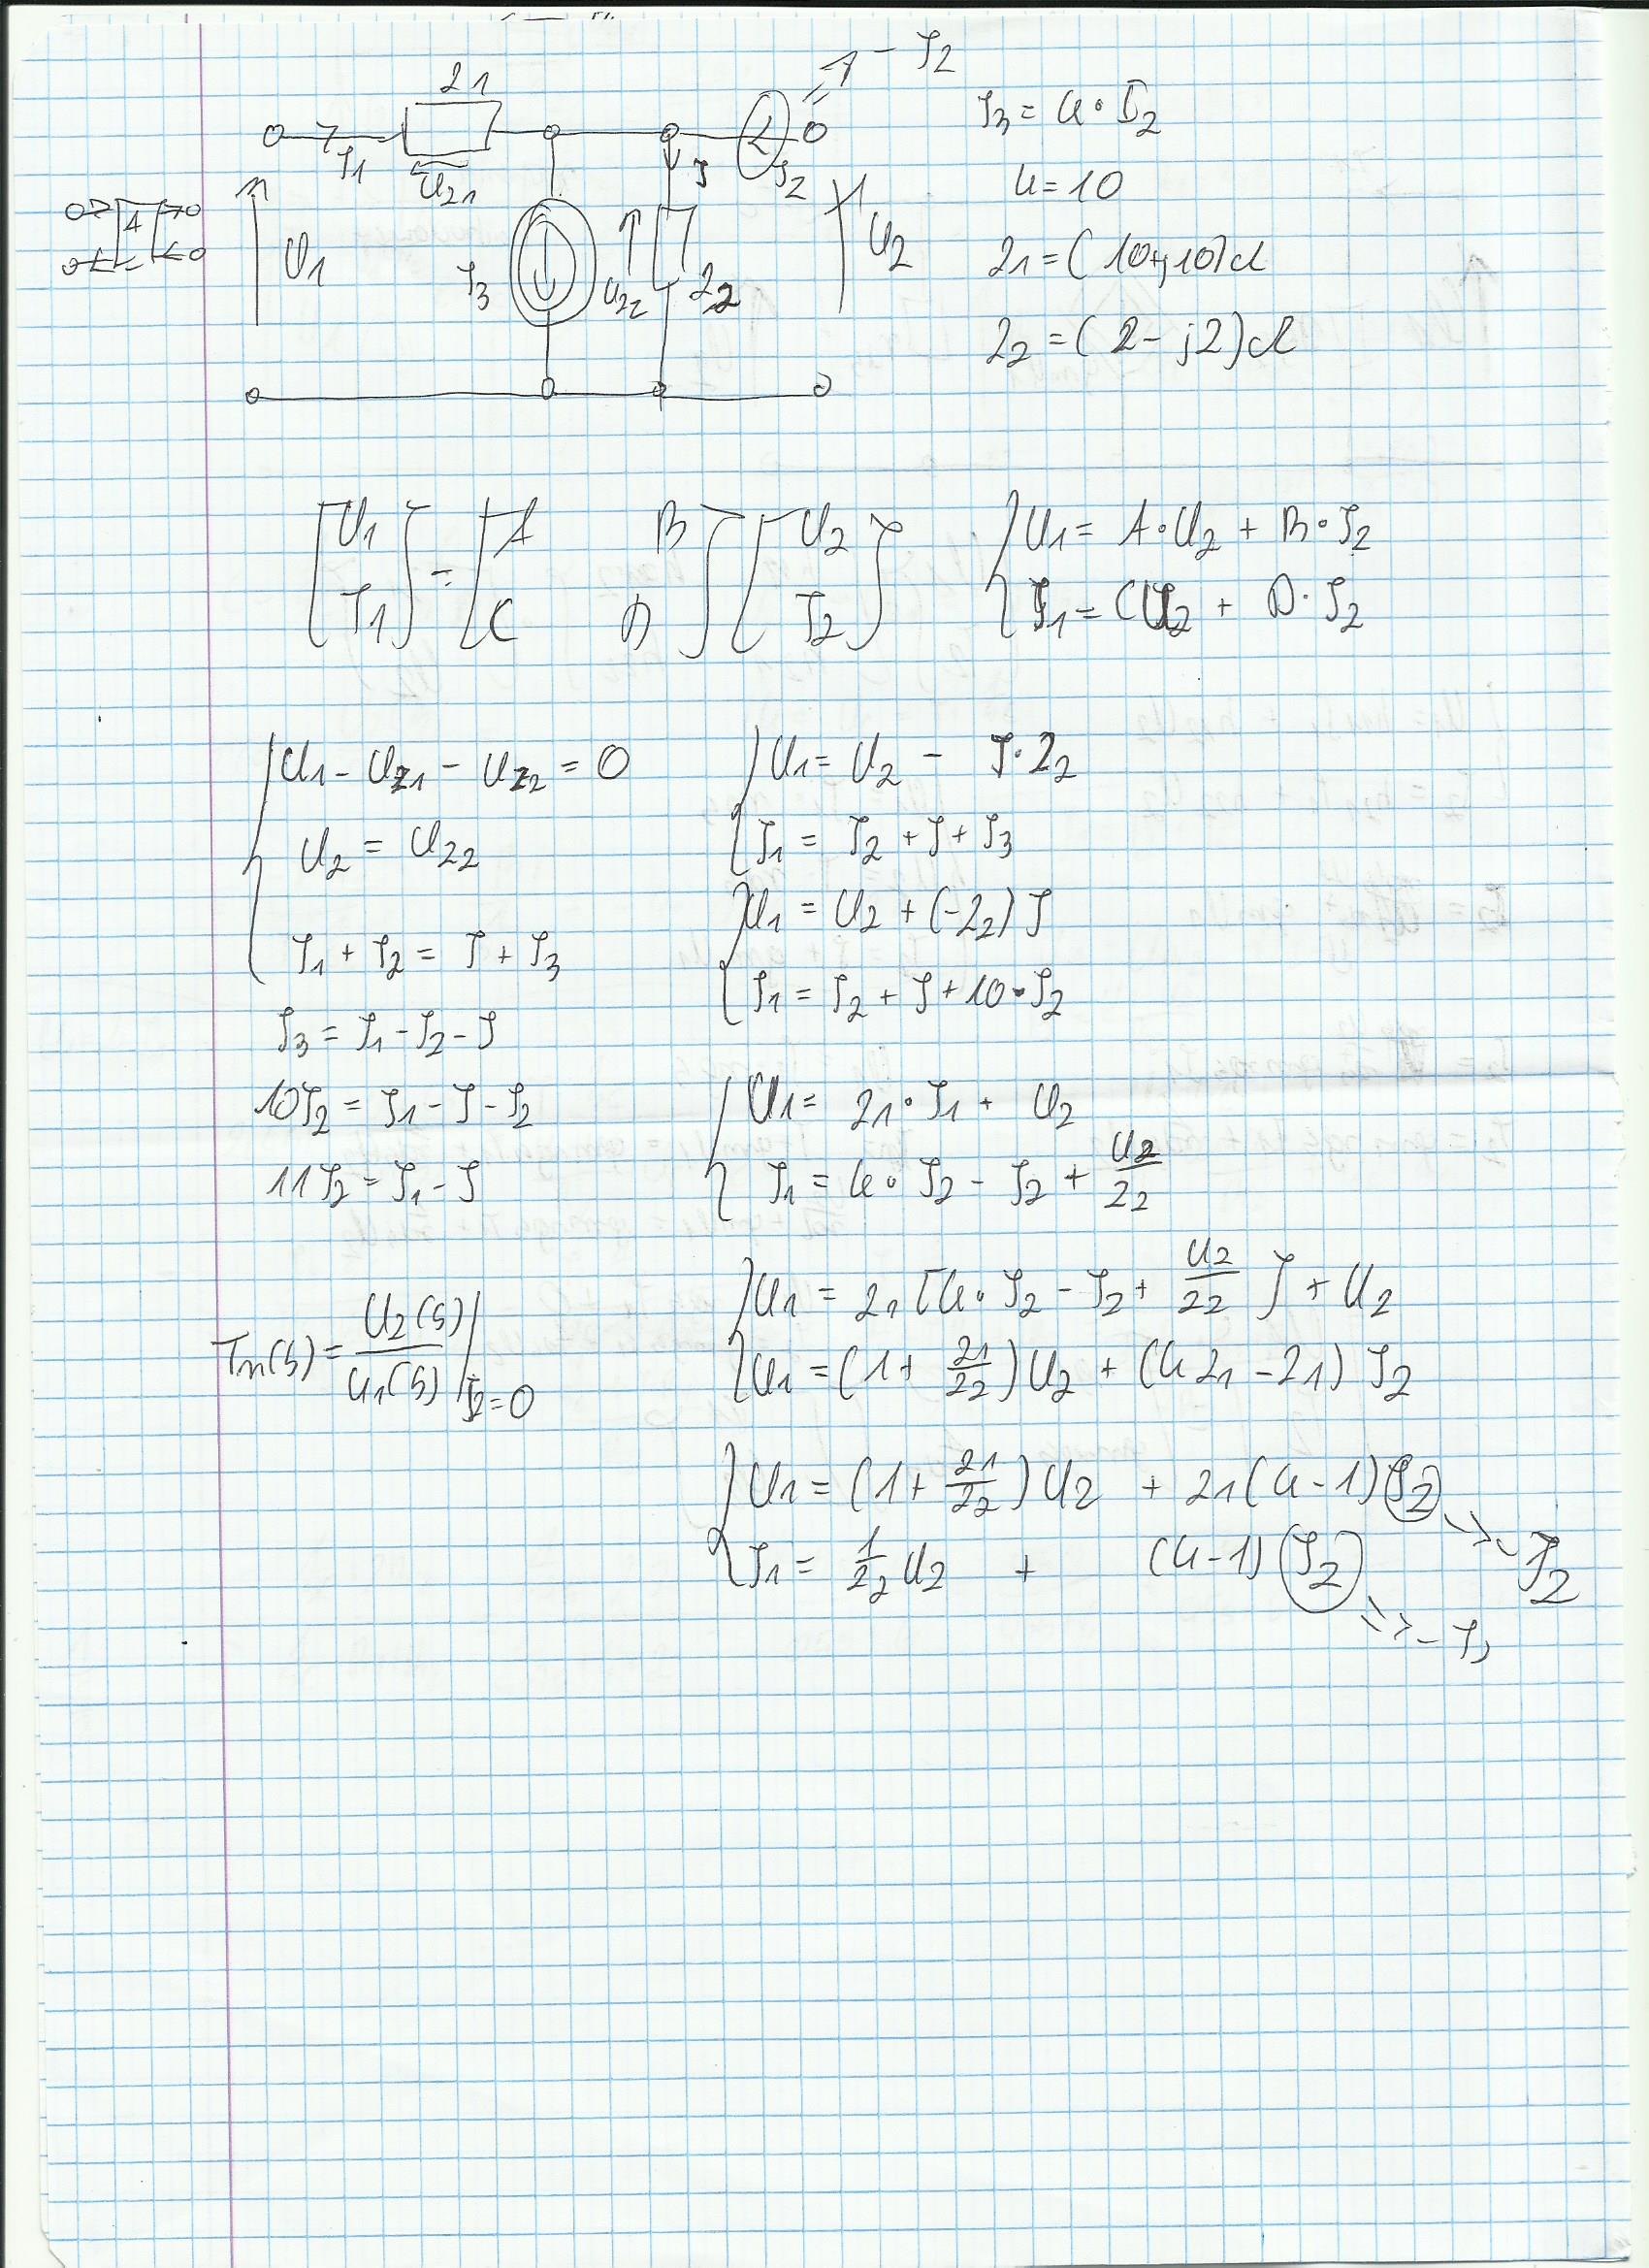 Z1
- I2
I3 = α · I2
I1
UZ1
I
I2
α = 10
A
U1
I3
UZ2
Z2
U2
Z1 = (10+j10)Ω
Z2 = (2 - j2)Ω
[U1 I1] = [A B C D] [U2 I2]
{ U1 = A·U2 + B·I2
I1 = CU2 + D·I2
{ U1 - UZ1 - UZ2 = 0
U2 = UZ2
I1 + I2 = I + I3
I3 = I1 - I2 - I
10I2 = I1 - I - I2
11I2 = I1 - I
Tu(s) = U2(s)/U1(s) | I2=0
{ U1 = U2 - I·Z2
I1 = I2 + I + I3
{ U1 = U2 + (-Z2) I
I1 = I2 + I + 10·I2
{ U1 = Z1·I1 + U2
I1 = α·I2 - I2 + U2/Z2
{ U1 = Z1[α·I2 - I2 + U2/Z2] + U2
{ U1 = (1 + Z1/Z2)U2 + (αZ1 - Z1) I2
{ U1 = (1 + Z1/Z2)U2 + Z1(α-1) I2 => -I2
I1 = 1/Z2 U2 + (α-1) I2 => -I2